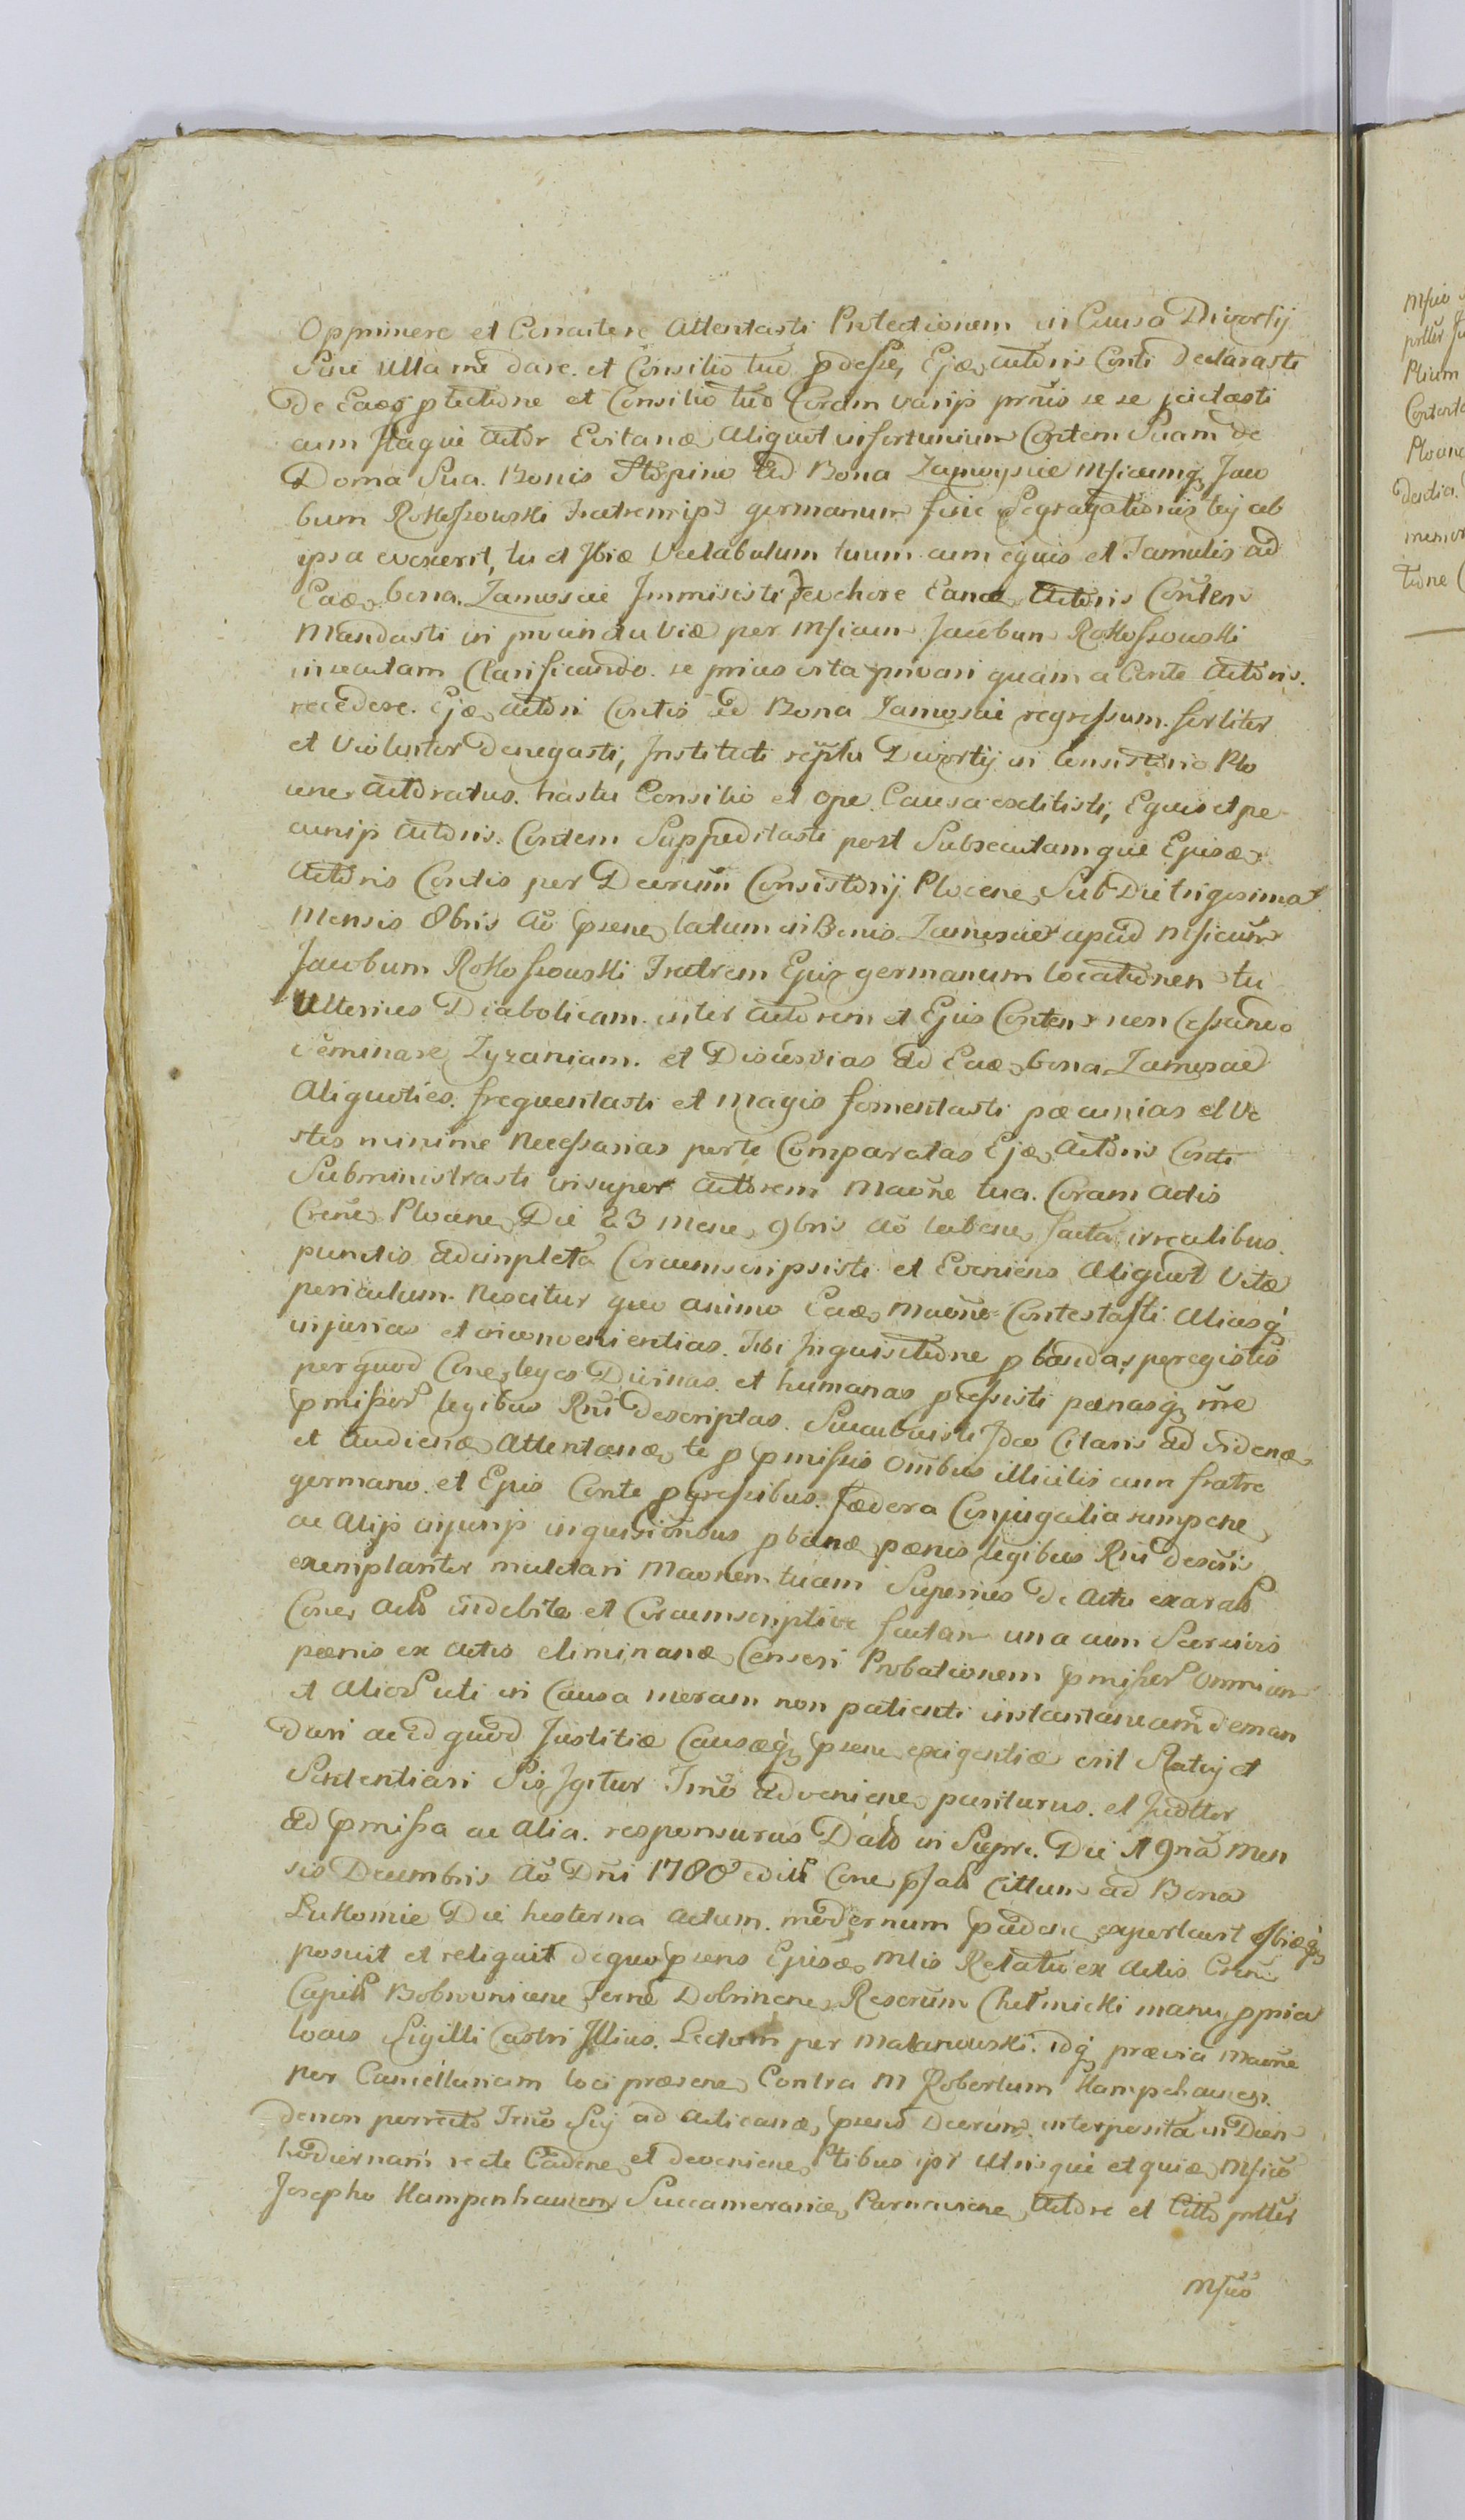 Opprimere et Concutere attentasti Protectionem in Causa Divorsij
Sine ulla me dare. et Consilio tuo pdesse, Ejæ, Actoris Conti declarasti
De Eaeq ptectione et Consilio tuo Coram varijs prnis se se jactasti
cum Itaque Actor Evitanæ, Aliquot infortunium Contem Suam de
Domo Sua. Bonis Stópino ad Bona Zamoyscie Msicumq Jaco
bum Rokossowski Fratrem ips germanum sine Segragationis tuj ab
ipsa evexerit, tu et Ibiæ Vectabulum tuum cum equis et Famulis ad
Eaæ, bona. Zamoscie Immisisti, evehere Eanæ, Actoris Conten
Mandasti in via per Msicum Jacobum Rokossowski
insecutam Clarificando. se prius vita privari quam a Conte Actoris.
recedere. Ejæ, Actori Contis ad Bona Zamoscie regressum.
et Violenter Denegasti, Divortij in Consistorio Plo
cene, Actoratus. Consilio et Ope. Causa exlitisti, Equis et pe
cunijs Actoris. Contem Suppeditasti post Subsecutamque Ejusæ
Actoris Contis per Decretum Consistorij Plocene, Sub Die trigesima
Mensis 8bris Aō psene, latum in Bonis Zamoscie apud Msicum
Jacobum Rokossowski Fratrem Ejus germanum locationem tu
Ulterius Diabolicam. inter Actorem et Ejus Contem non Cessando
Seminare, Zyzaniam. et Discordias ad Eaæ, bona Zamoscie
Aliquoties. frequentasti et magis fomentasti pæcunias et Ve
stes minime Necessarias per te Comparatas Ejæ, Actoris Conti
Subministrasti insuper Actorem Maone tua. Coram Actis
Crene, Plocene, Die 23 Mene, 9bris Aō facta irrealibus.
punctis adimpleta Circumscripsisti et Eveniens Aliquot Vitæ
periculum. Nescitur quo animo Eaæ, Maone Contestasti Aliasq
injurias et inconvenientias. Tibi Inquisitione pbandas, peregistis
per quod Cone, leges Divinas. et humanas pcessisti pænasq me
pmissor legibus Rni Descriptas. Succubuisti Ideo Citaris ad videnæ
et Audienæ, Attentanæ, te p pmissis Omibus illicitis cum fratre
germano. et Ejus Conte pgressibus. fædera Conjugalia rumpene,
ac Alijs injurijs inquisionbus pbanæ, pænis legibus Rni descris
exemplariter mulctari Maonem tuam Superius de Actu exarato
Cone, Acto indebite et Circumscriptive factam una cum Scrutinis
pænis ex Actis eliminanæ, Censeri Probationem pmissor Omnium
et Alior uti in Causa moram non patienti instantaneam deman
dari ac id quod Justitiæ Causæq psene, exigentiæ erit Statuj et
Sententiari Sis Igitur Trno adveniene, pariturus. et Judtter
ad pmissa ac Alia. responsurus Dato in Supre. Die 19na Men
sis Decembris Aō Dni 1780 edito Cone, Cittum ad Bona
Lukomie Die hesterna Actum. modernum exportavit Ibiæq
posuit et reliquit de quo psens Ejusæ, Mlis Relatio ex Actis Crene
Capits Bobrovniene, Terræ Dobrinene, Reserum Chełmicki manu ppria
locus Sigilli Castri Illius. Lectum per Makarowski. idq prævia Maone
per Cancellariam loci præsene, Contra M Robertum Hampehausen.
de non perrecto Trno Sij ad Acticanæ, psens Decretum interposita in Diem
hodiernam recte Cadene, et deveniene, Ptibus ipr Utrisque et quiæ, Msico
Josepho Hampenhausen Succamerariæ, Parnaviene, Actore et Citto prtter
Msico